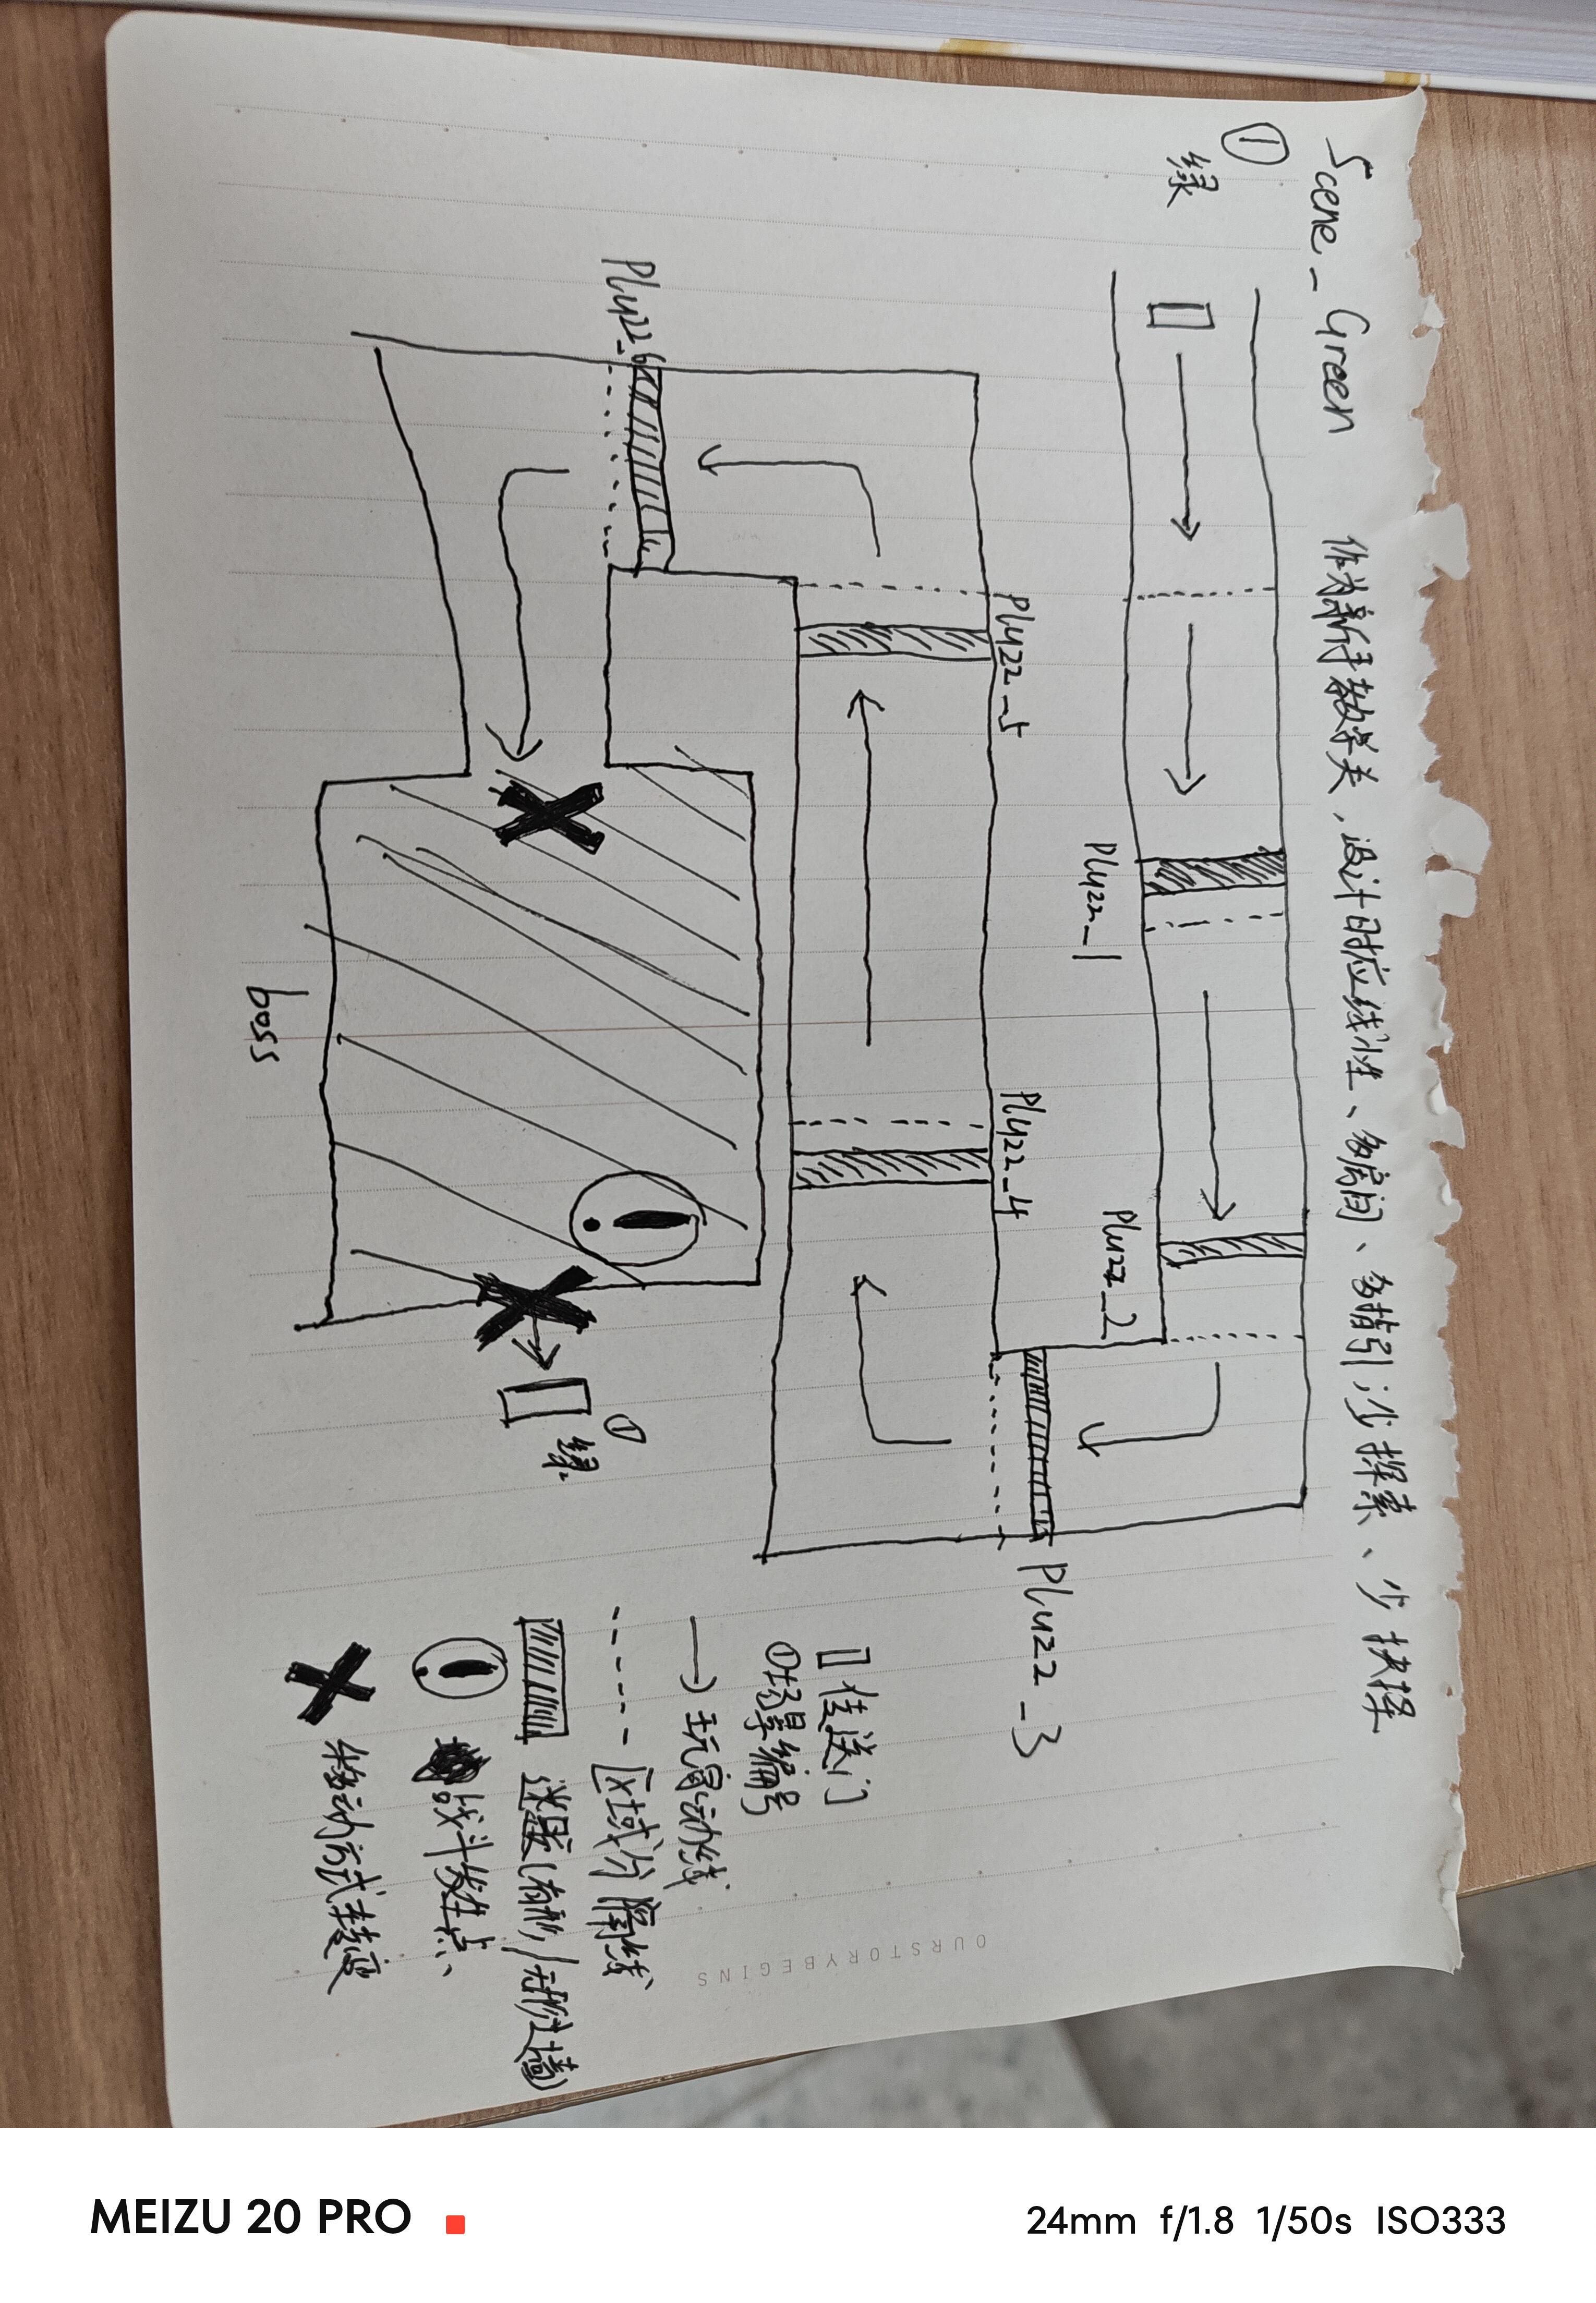 Scene_Green 作为新手教学关，设计时应线性、多房间、多指引；少探索、少抉择
①
绿
Pluzz_1
Pluzz_2
Pluzz_3
Pluzz_4
Pluzz_5
Pluzz_6
boss
①
绿
传送门
①场景编号
→ 玩家动线
区域分隔线
谜题(有形/无形之墙)
战斗发生点、
移动方式转变
OURSTORYBEGINS
MEIZU 20 PRO
24mm f/1.8 1/50s ISO333